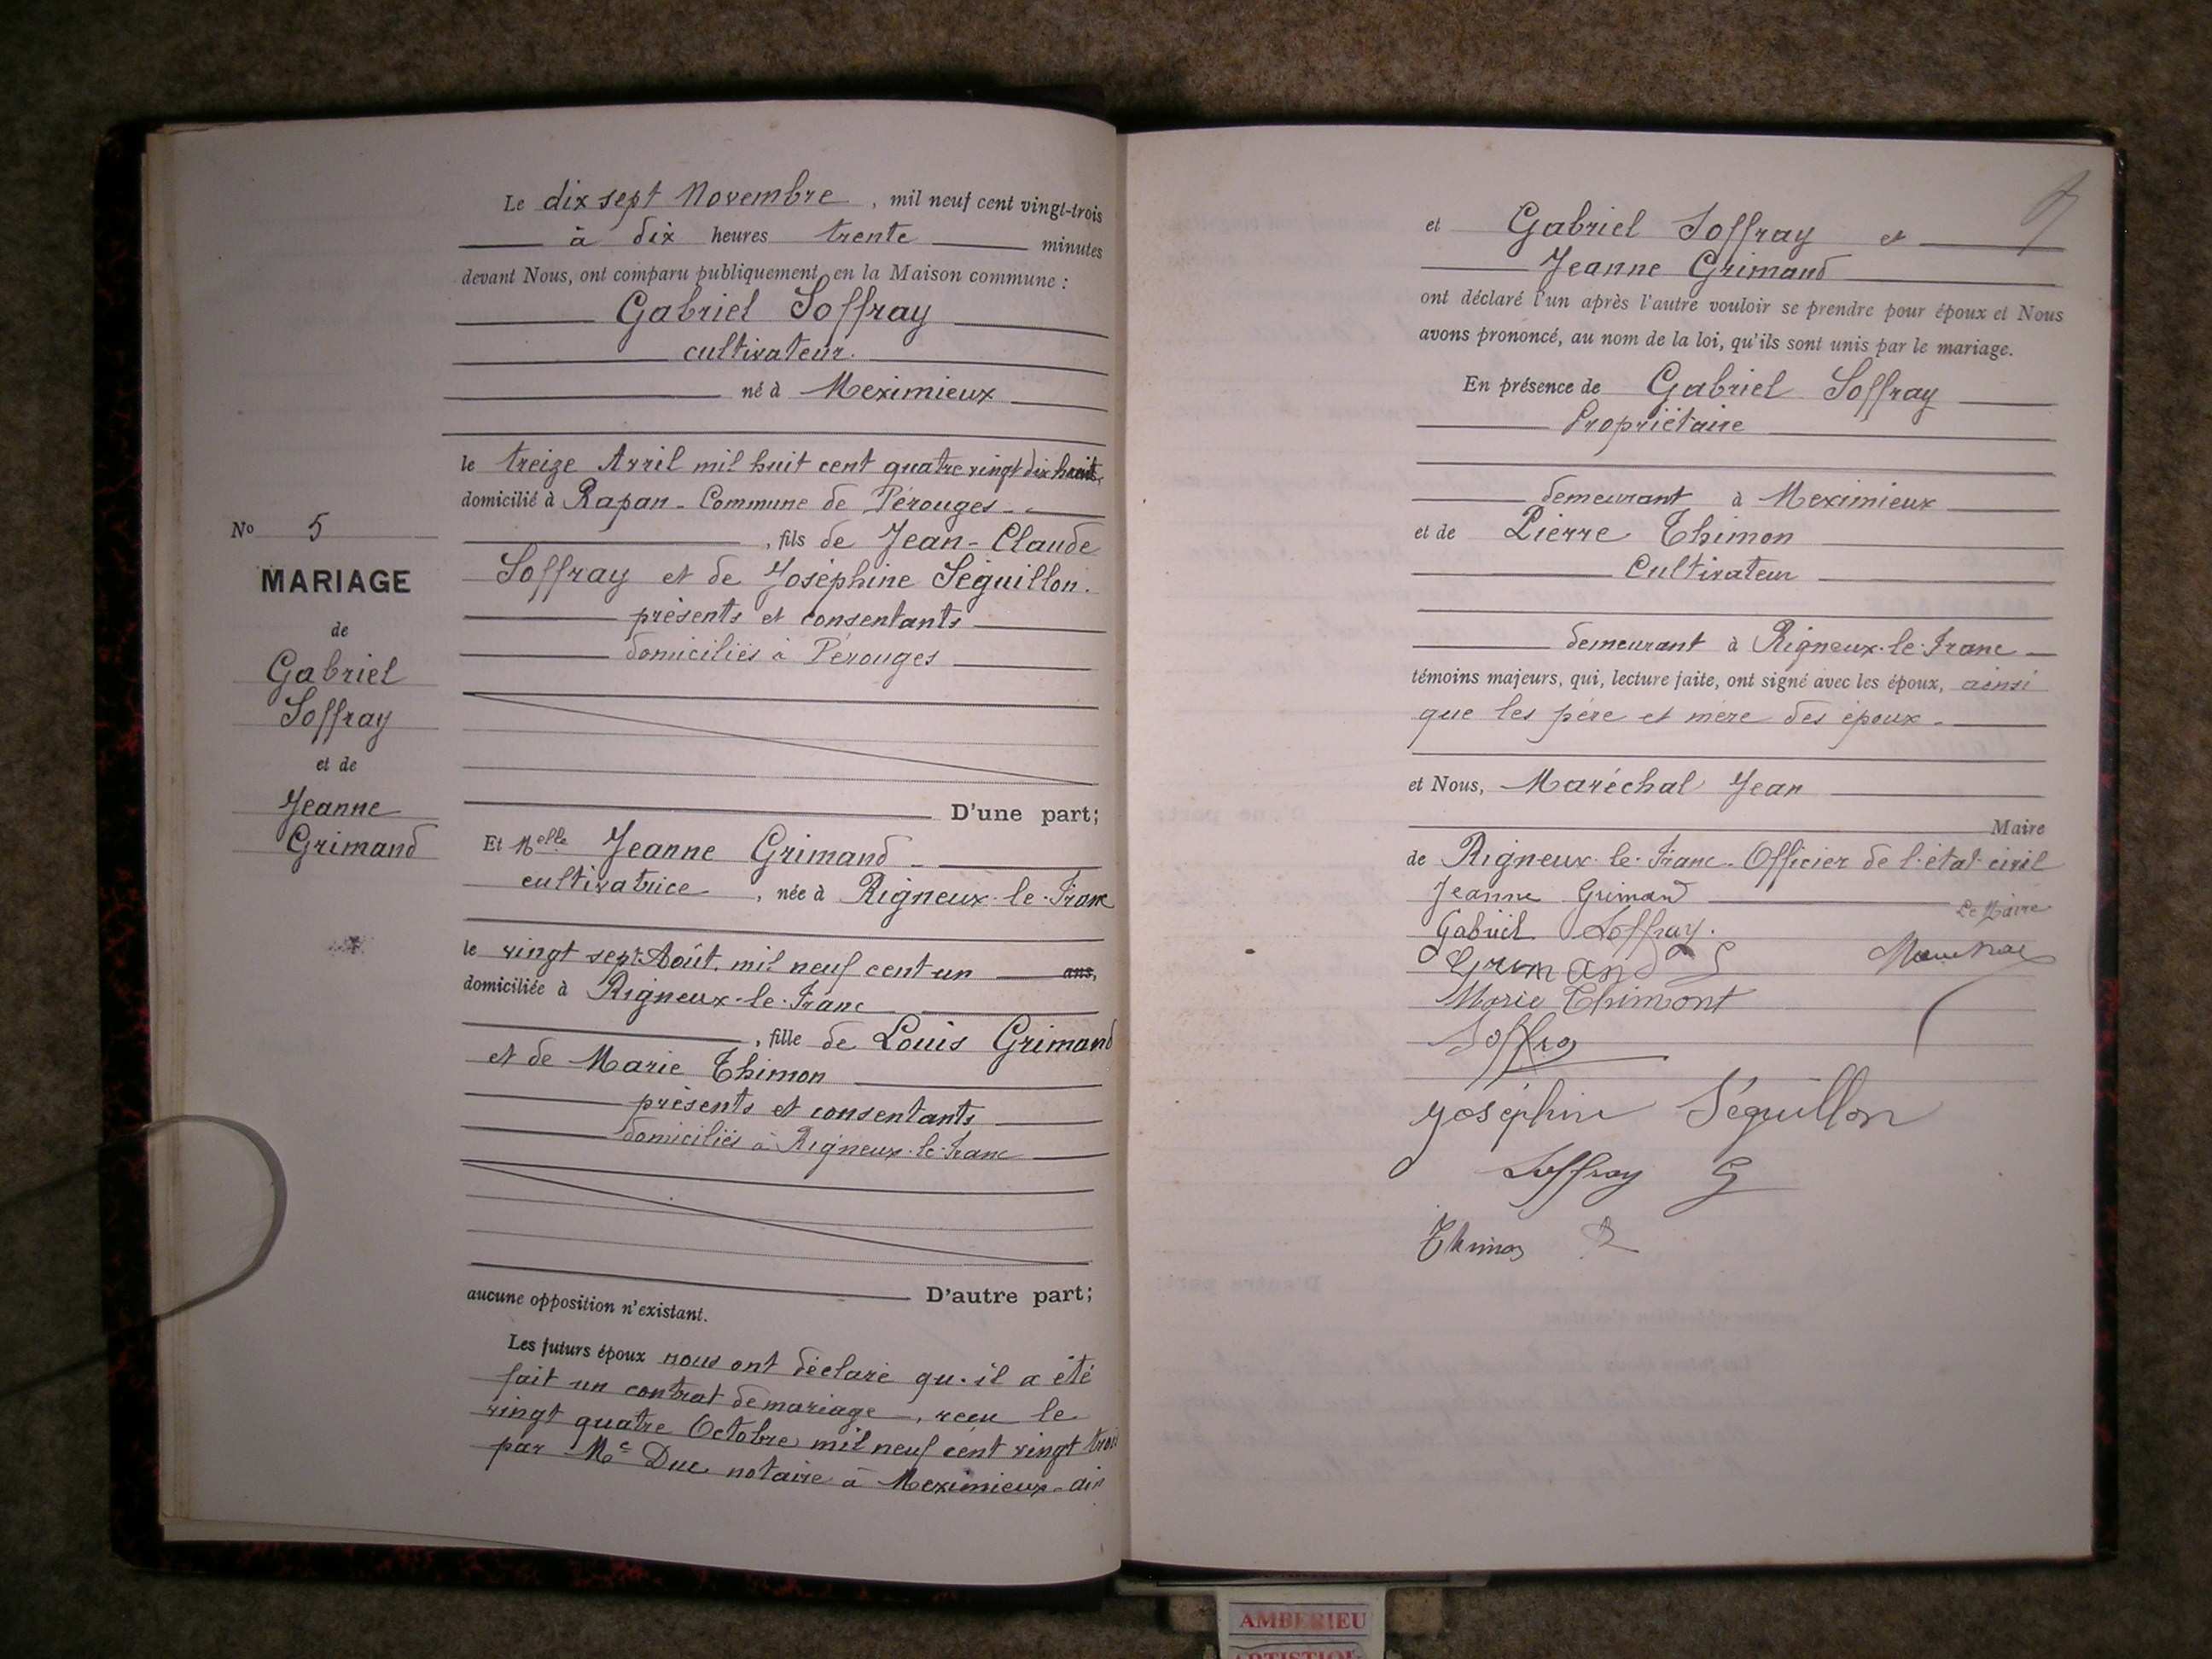 Le dix sept Novembre, mil neuf cent vingt-trois
à dix heures trente minutes
devant Nous, ont comparu publiquement en la Maison commune :
Gabriel Soffray
cultivateur.
né à Meximieux
le treize Avril mil huit cent quatre vingt dix huit
domicilié à Rapan - Commune de Pérouges -
, fils de Jean-Claude
Soffray et de Joséphine Séguillon.
présents et consentants
domiciliés à Pérouges
D'une part;
No 5
MARIAGE
de
Gabriel
Soffray
et de
Jeanne
Grimand
Et Melle Jeanne Grimand -
cultivatrice, née à Rigneux-le-Franc
le vingt sept Août, mil neuf cent un ans,
domiciliée à Rigneux-le-Franc
, fille de Louis Grimand
et de Marie Thimon
présents et consentants
domiciliés à Rigneux-le-Franc
D'autre part;
aucune opposition n'existant.
Les futurs époux nous ont déclaré qu'il a été
fait un contrat de mariage, reçu le
vingt quatre Octobre mil neuf cent vingt trois
par Me Duc notaire à Meximieux - ain
et Gabriel Soffray et
Jeanne Grimand
ont déclaré l'un après l'autre vouloir se prendre pour époux et Nous
avons prononcé, au nom de la loi, qu'ils sont unis par le mariage.
En présence de Gabriel Soffray
Propriétaire
demeurant à Meximieux
et de Pierre Thimon
Cultivateur
demeurant à Rigneux-le-Franc
témoins majeurs, qui, lecture faite, ont signé avec les époux, ainsi
que les père et mère des époux -
et Nous, Maréchal Jean
Maire
de Rigneux-le-Franc - Officier de l'état-civil
Jeanne Grimand
Le Maire
Gabriel Soffray.
Grimand
Marie Thimont
Joséphine Séguillon
Soffray G
Thimon
AMBERIEU